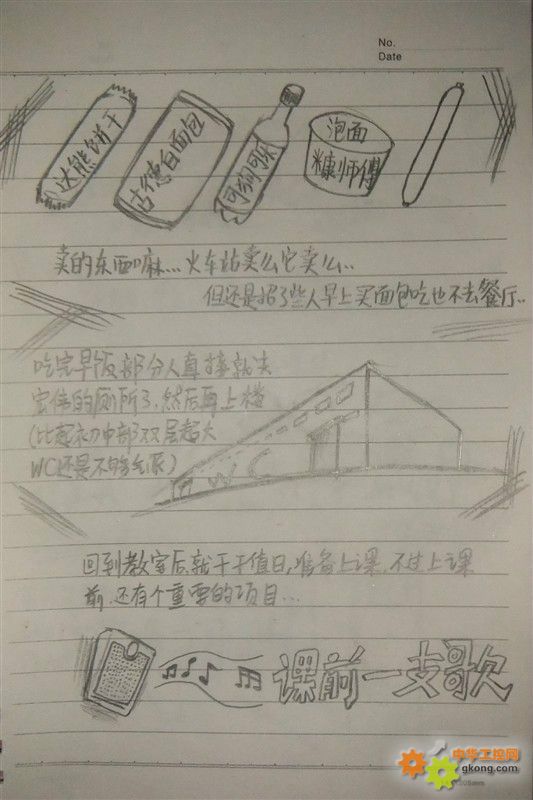 No.
Date
达能饼干
古德白面包
可狗可乐
泡面
糠师傅
卖的东西嘛...火车站卖么它卖么..
但还是招了些人早上买面包吃也不去餐厅..
吃完早饭部分人直接就去
宏伟的厕所了.然后再上楼
(比起初中部双层超大
WC还是不够气派)
WC
回到教室后就干干值日,准备上课,不过上课
前,还有个重要的项目...
课前一支歌
中华工控网
gkong.com